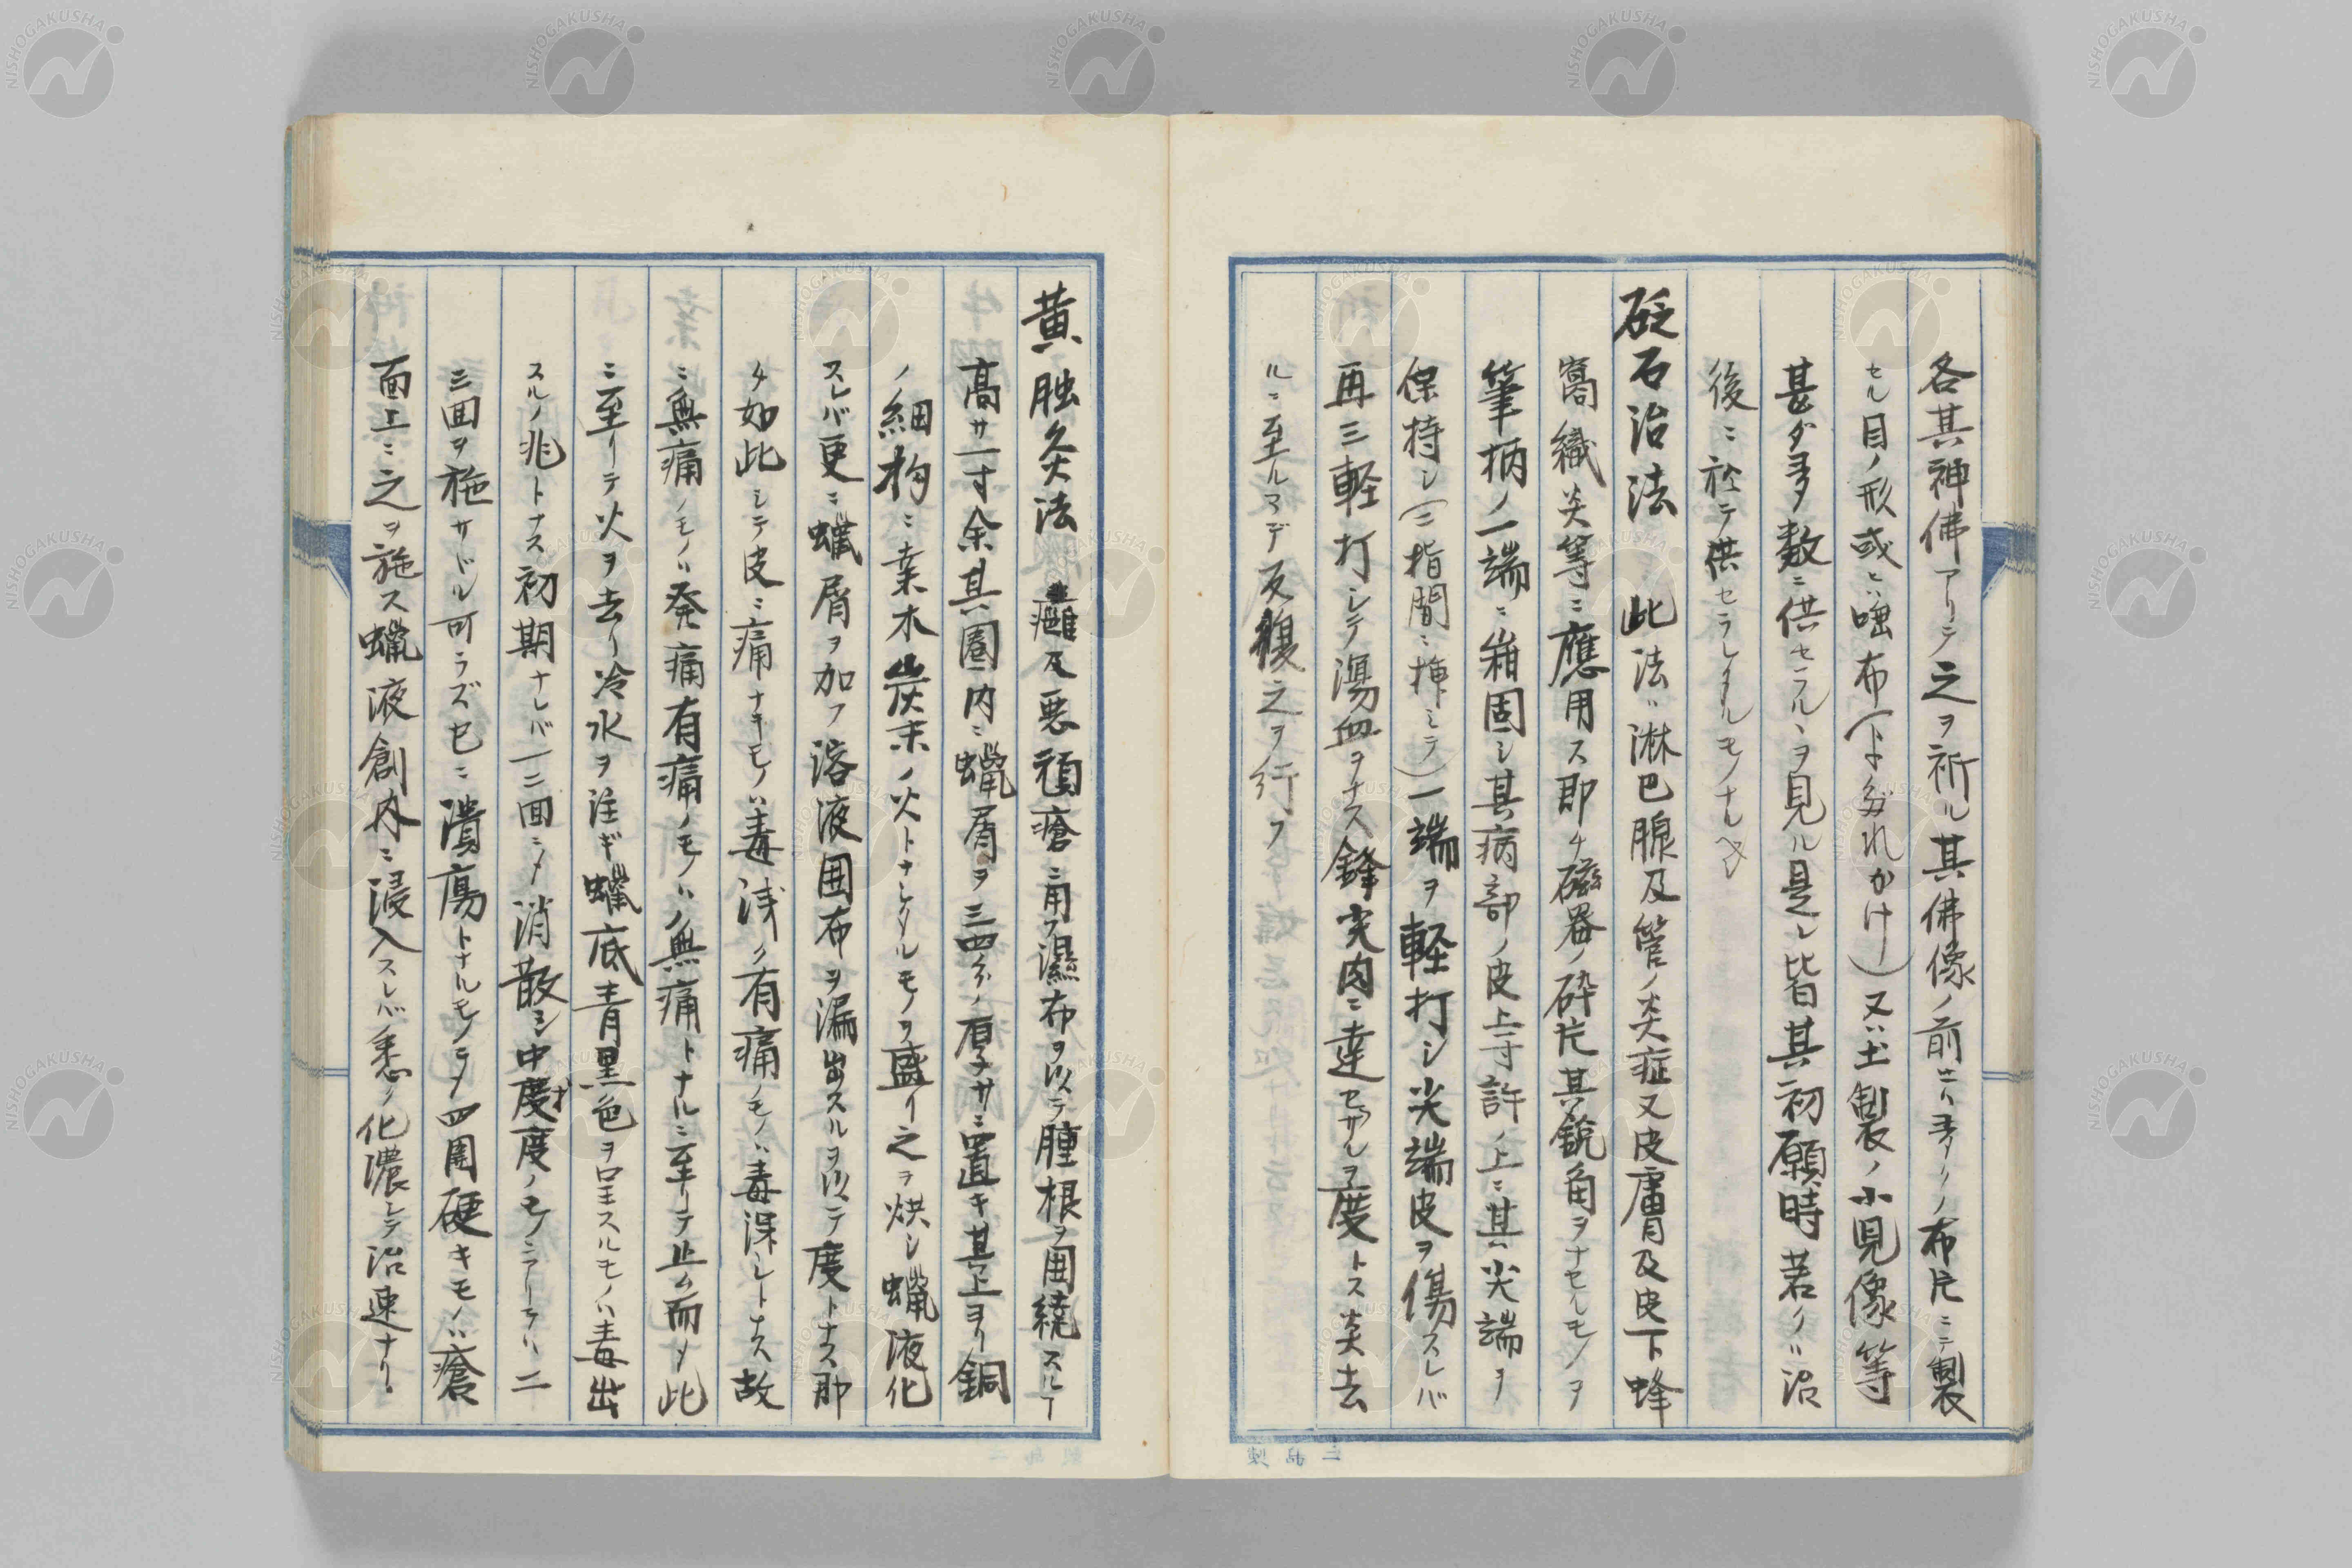 各其神佛アリテ之ヲ祈ル其佛像ノ前ニハ多クノ布片ニテ製
セル目ノ形或ハ唾布(よだれかけ)又ハ土製ノ小児像等
甚ダ多数ニ供セラルヽヲ見ル是レ皆其初願時若クハ治
後ニ於テ供セラレタルモノナルベシ
砭石治法 此法ハ淋巴腺及管ノ炎症又皮膚及皮下蜂
窩織炎等ニ應用ス即チ磁器ノ砕片其鋭角ヲナセルモノヲ
筆柄ノ一端ニ箝固シ其病部ノ皮上寸許ノ上ニ其尖端ヲ
保持シ(二指間ニ挿ミテ)一端ヲ軽打シ尖端皮ヲ傷スレバ
再三軽打シテ瀉血ヲナス鋒尖肉ニ達セザルヲ度トス炎去
ルニ至ルマデ反覆之ヲ行フ
黄蝋灸法 癰及悪頑瘡ニ用フ濕布ヲ以テ腫根ヲ囲繞スルヿ
高サ一寸余其圏内ニ蝋屑ヲ三四分ノ厚サニ置キ其上ヨリ銅
ノ細杓ニ桑木炭末ノ火トナレタルモノヲ盛リ之ヲ烘シ蝋液化
スレバ更ニ蝋屑ヲ加フ溶液囲布ヲ漏出スルヲ以テ度トナス即
チ如此シテ皮ニ痛ナキモノハ毒浅ク有痛ノモノハ毒深シトナス故
ニ無痛ノモノハ発痛有痛ノモノハ無痛トナルニ至リテ止ム而メ此
ニ至リテ火ヲ去リ冷水ヲ注ギ蝋底青黒色ヲ呈スルモノハ毒出
スルノ兆トナス初期ナレバ一二回ニメ消散シ中度ノモノニアリテハ二
三回ヲ施サヾル可ラズ已ニ潰瘍トナルモノニメ四周硬キモノハ瘡
面上ニ之ヲ施ス蝋液創内ニ浸入スレバ悉ク化濃シテ治速ナリ。